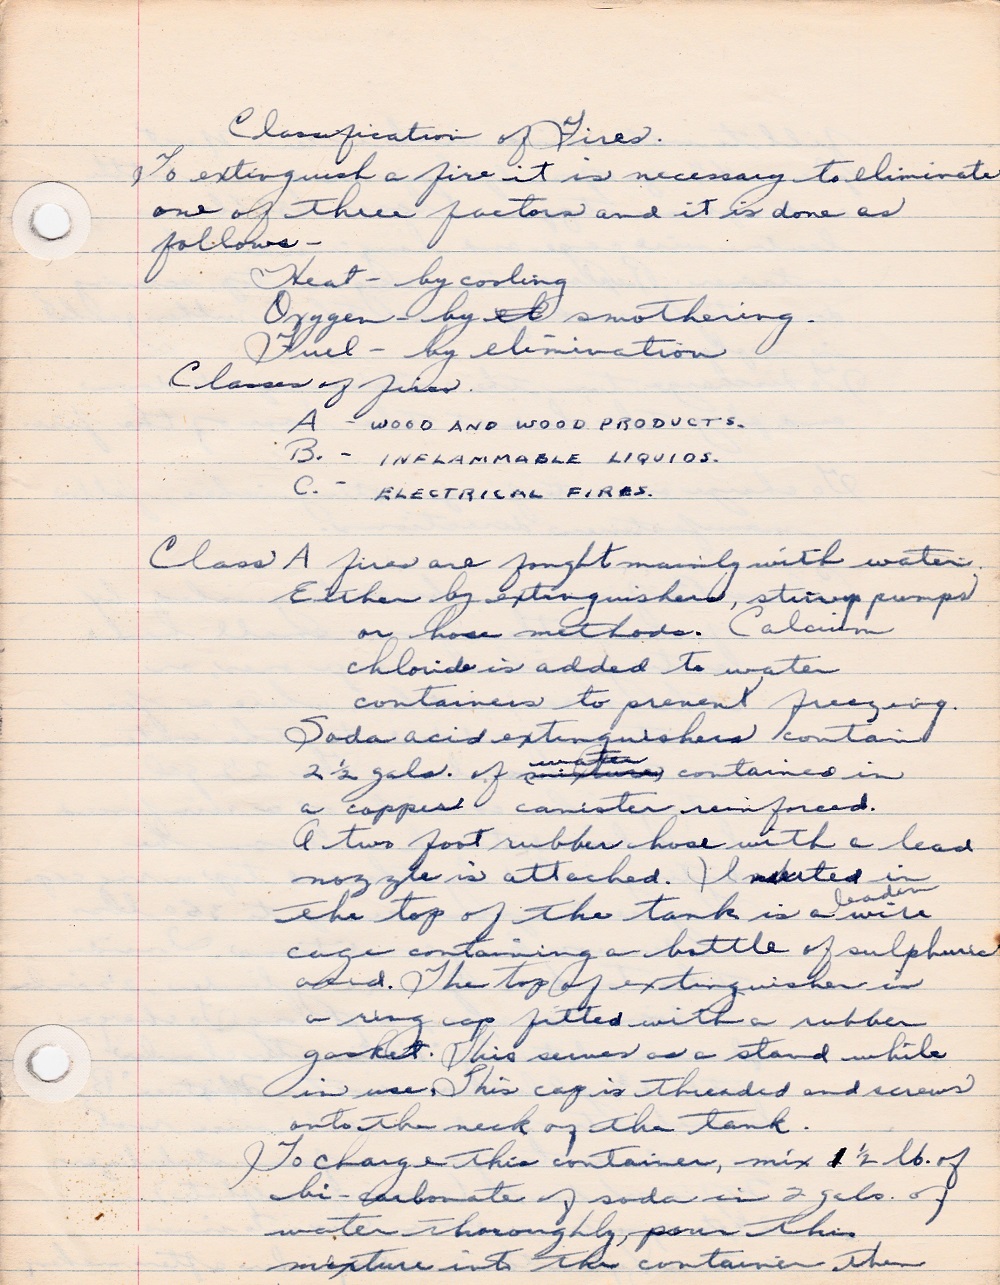 Classification of Fires.
To extinguish a fire it is necessary to eliminate
one of three factors and it is done as
follows -
Heat - by cooling
Oxygen - by smothering.
Fuel - by elimination
Classes of fires.
A - WOOD AND WOOD PRODUCTS.
B. - INFLAMMABLE LIQUIDS.
C. - ELECTRICAL FIRES.
Class A fires are fought mainly with water.
Either by extinguishers, stirrup pumps
or hose methods. Calcium
chloride is added to water
containers to prevent freezing.
Soda acid extinguishers contain
2 ½ gals. of water contained in
a copper canister reinforced.
A two foot rubber hose with a lead
nozzle is attached. Inserted in
the top of the tank is a leaden wire
cage containing a bottle of sulphuric
acid. The top of extinguisher is
a ring cap fitted with a rubber
gasket. This serves as a stand while
in use. This cap is threaded and screws
onto the neck of the tank.
To charge this container, mix 1 ½ lb. of
bi-carbonate of soda in 2 gals. of
water thoroughly, pour this
mixture into the container then